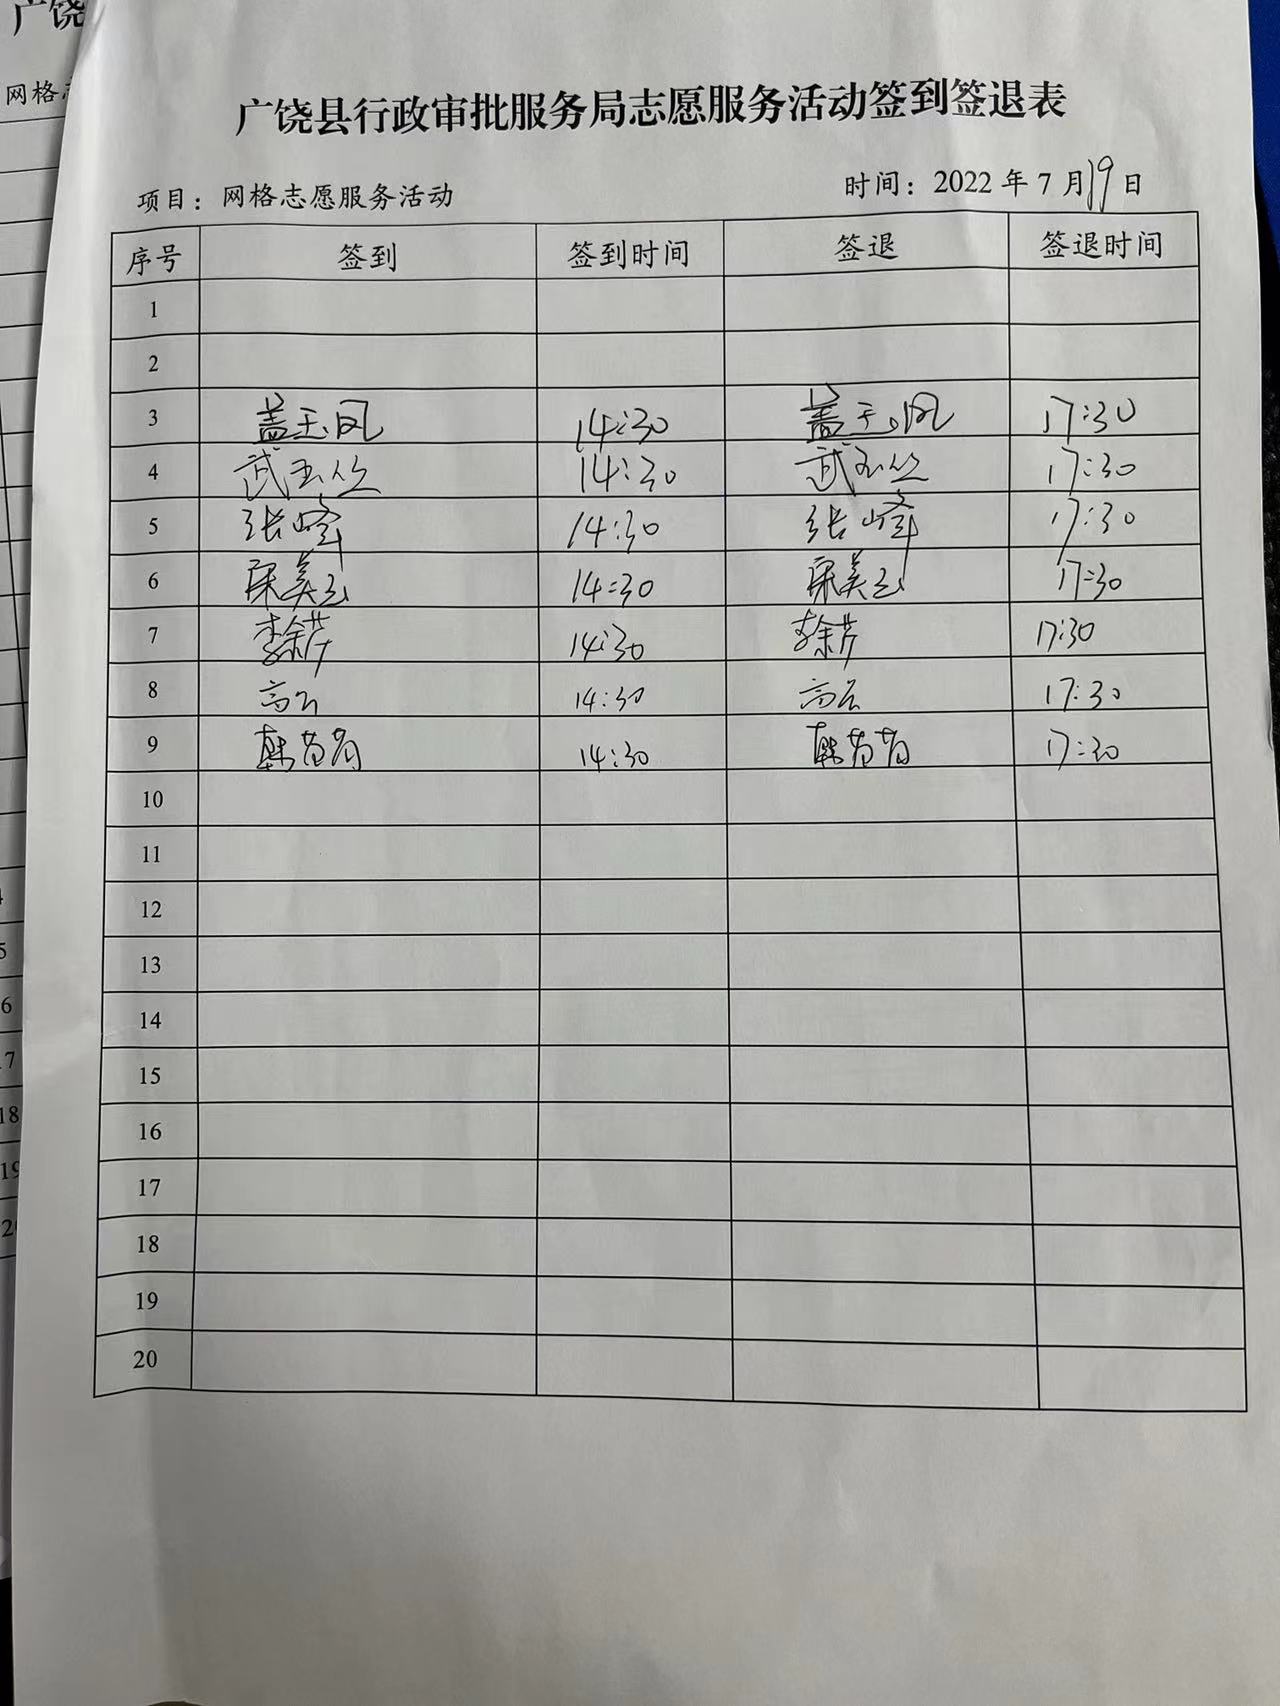 广饶
网格志
广饶县行政审批服务局志愿服务活动签到签退表
项目：网格志愿服务活动 时间：2022 年 7 月19日
序号 签到 签到时间 签退 签退时间
1
2
3 盖玉凤 14:30 盖玉凤 17:30
4 武玉丛 14:30 武玉丛 17:30
5 张峰 14:30 张峰 17:30
6 14:30 17:30
7 李余芹 14:30 李余芹 17:30
8 高云 14:30 高云 17:30
9 韩苗苗 14:30 韩苗苗 17:30
10
11
12
13
14
15
16
17
18
19
20